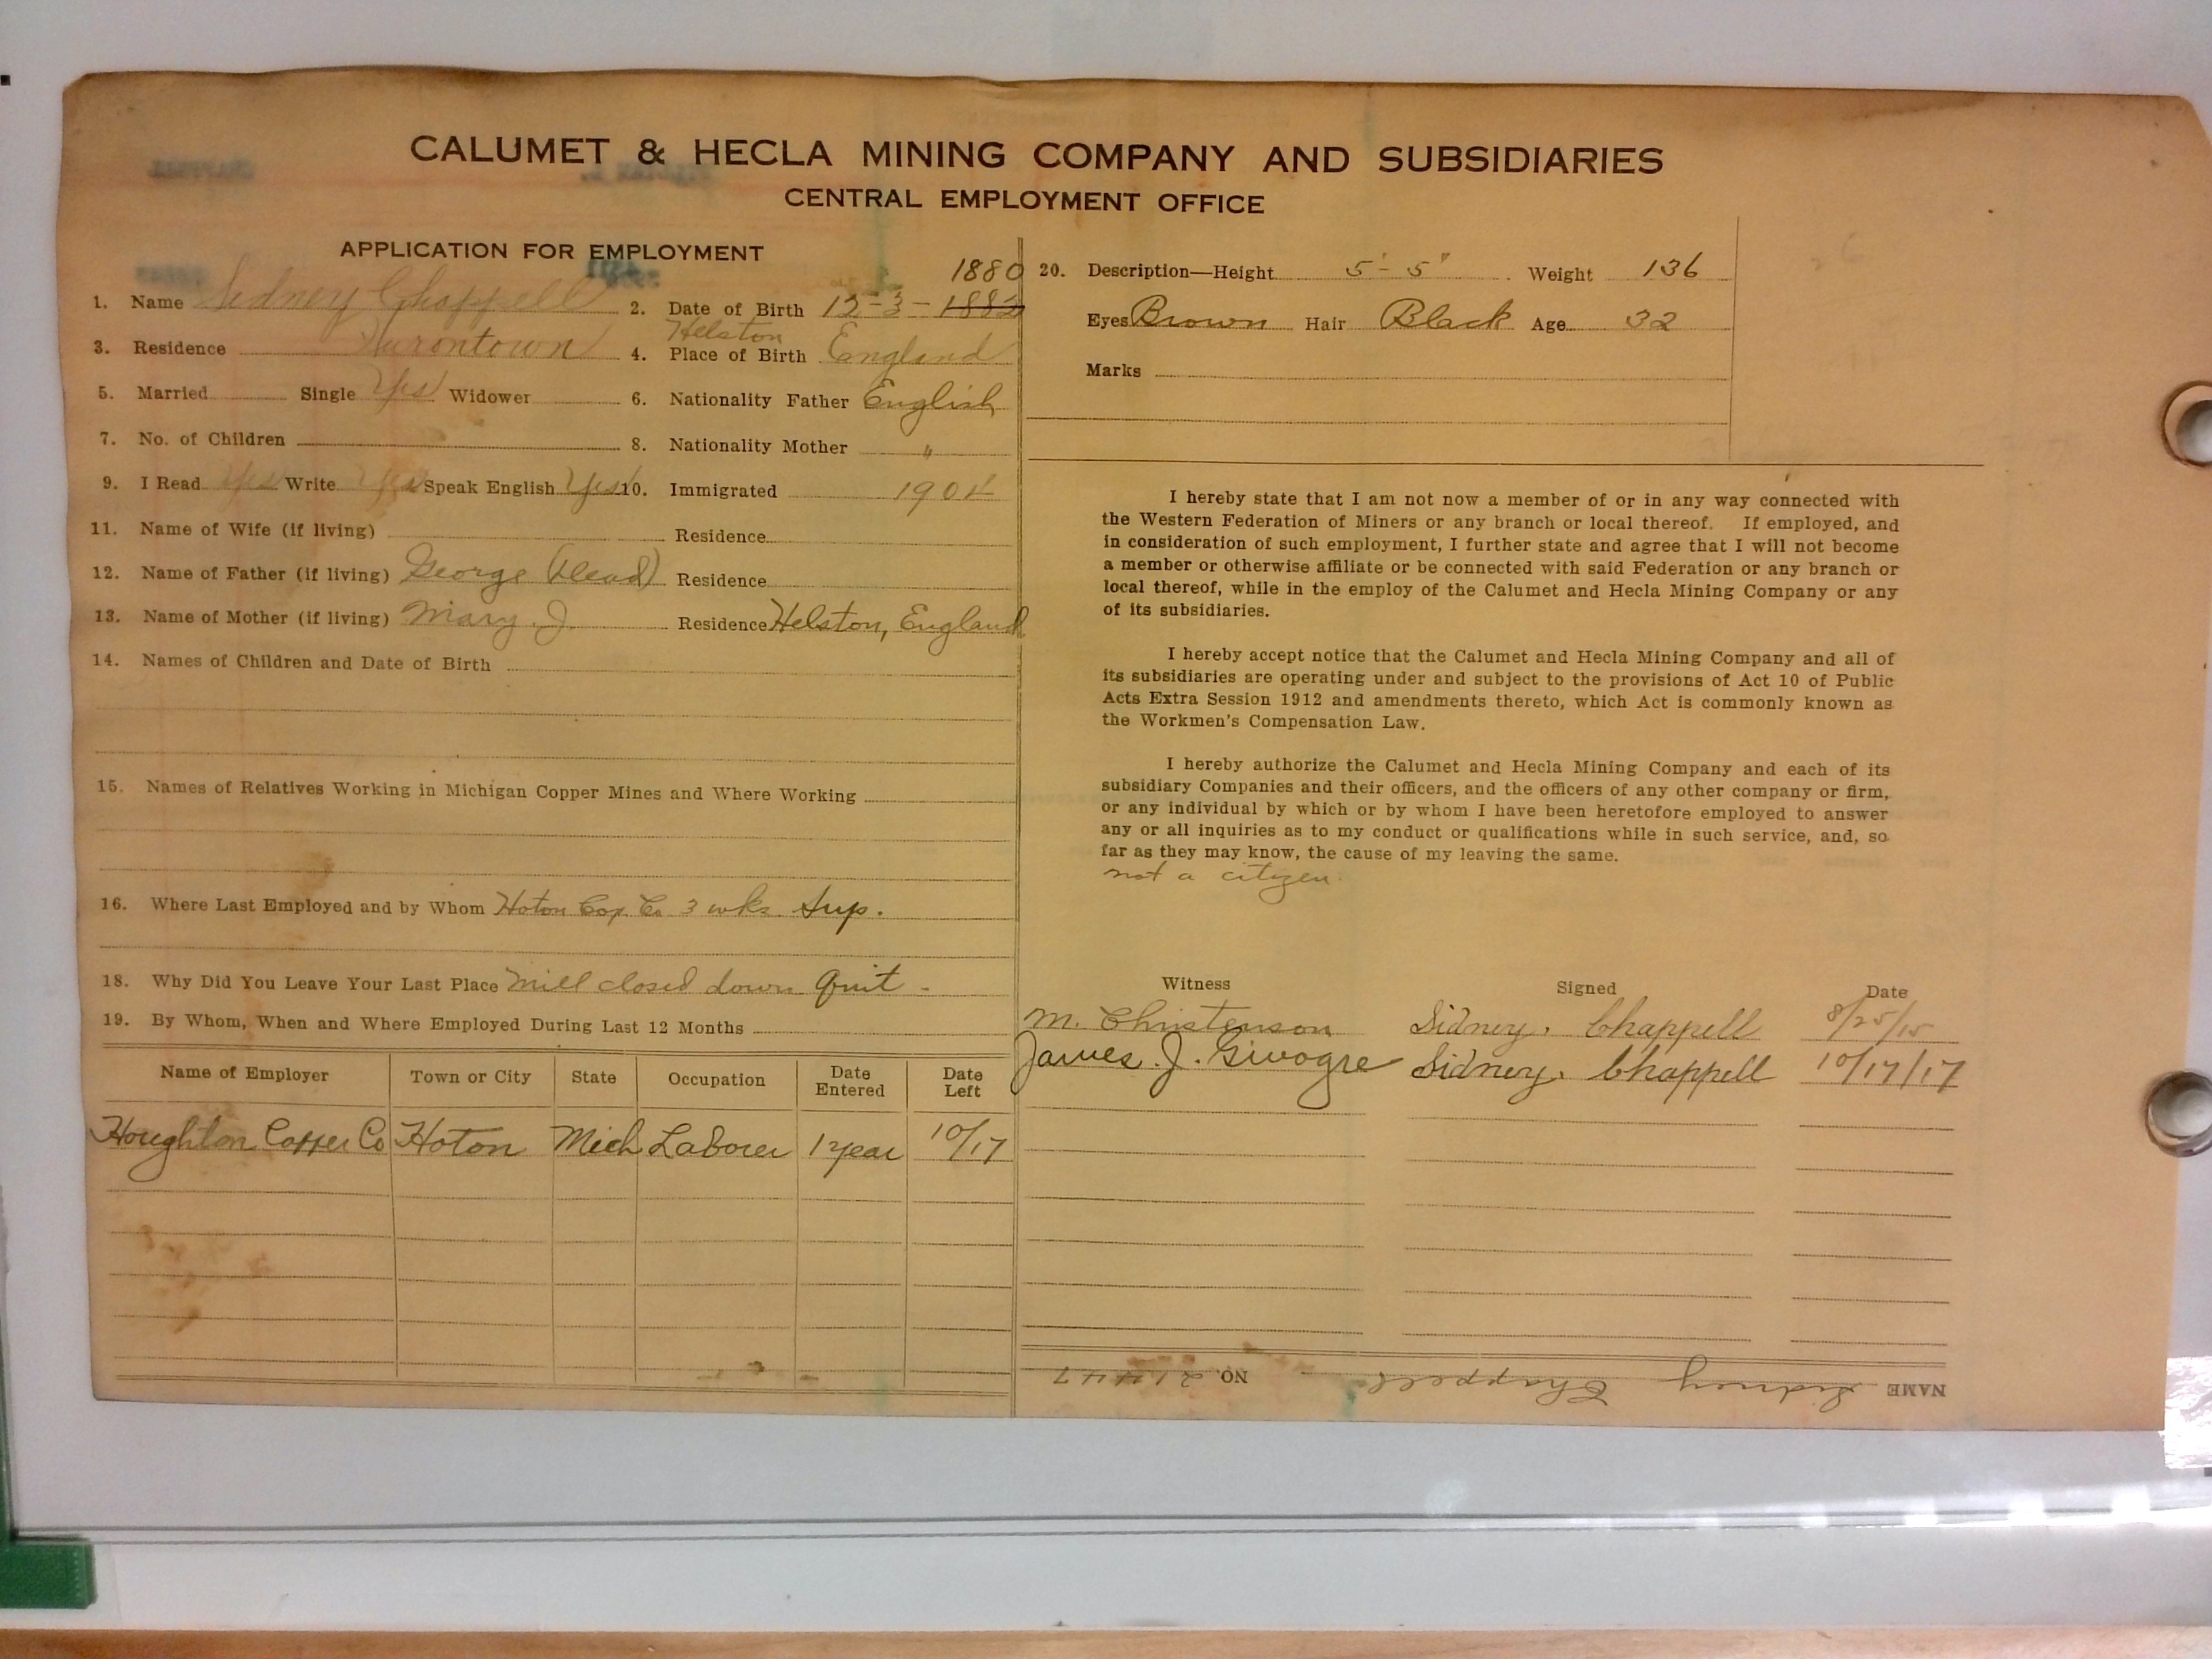 CALUMET & HECLA MINING COMPANY AND SUBSIDIARIES
CENTRAL EMPLOYMENT OFFICE
APPLICATION FOR EMPLOYMENT
1880
1. Name Sidney Chappell 2. Date of Birth 12-3-1882
Helston
3. Residence Hurontown 4. Place of Birth England
5. Married Single Yes Widower 6. Nationality Father English
7. No. of Children 8. Nationality Mother "
9. I Read Yes Write Yes Speak English Yes 10. Immigrated 1904
11. Name of Wife (if living) Residence
12. Name of Father (if living) George (Dead) Residence
13. Name of Mother (if living) Mary J. Residence Helston, England
14. Names of Children and Date of Birth
15. Names of Relatives Working in Michigan Copper Mines and Where Working
16. Where Last Employed and by Whom Hoton Cop. Co 3 wks Sup.
18. Why Did You Leave Your Last Place Mill closed down Quit -
19. By Whom, When and Where Employed During Last 12 Months
Name of Employer Town or City State Occupation Date Entered Date Left
Houghton Copper Co Hoton Mich Laborer 1 year 10/17
20. Description—Height 5' - 5" Weight 136
Eyes Brown Hair Black Age 32
Marks
I hereby state that I am not now a member of or in any way connected with
the Western Federation of Miners or any branch or local thereof. If employed, and
in consideration of such employment, I further state and agree that I will not become
a member or otherwise affiliate or be connected with said Federation or any branch or
local thereof, while in the employ of the Calumet and Hecla Mining Company or any
of its subsidiaries.
I hereby accept notice that the Calumet and Hecla Mining Company and all of
its subsidiaries are operating under and subject to the provisions of Act 10 of Public
Acts Extra Session 1912 and amendments thereto, which Act is commonly known as
the Workmen's Compensation Law.
I hereby authorize the Calumet and Hecla Mining Company and each of its
subsidiary Companies and their officers, and the officers of any other company or firm,
or any individual by which or by whom I have been heretofore employed to answer
any or all inquiries as to my conduct or qualifications while in such service, and, so
far as they may know, the cause of my leaving the same.
not a citizen
Witness Signed Date
M. Christenson Sidney. Chappell 8/25/15
James. J. Sidney. Chappell 10/17/17
NAME Sidney Chappell NO. 21447